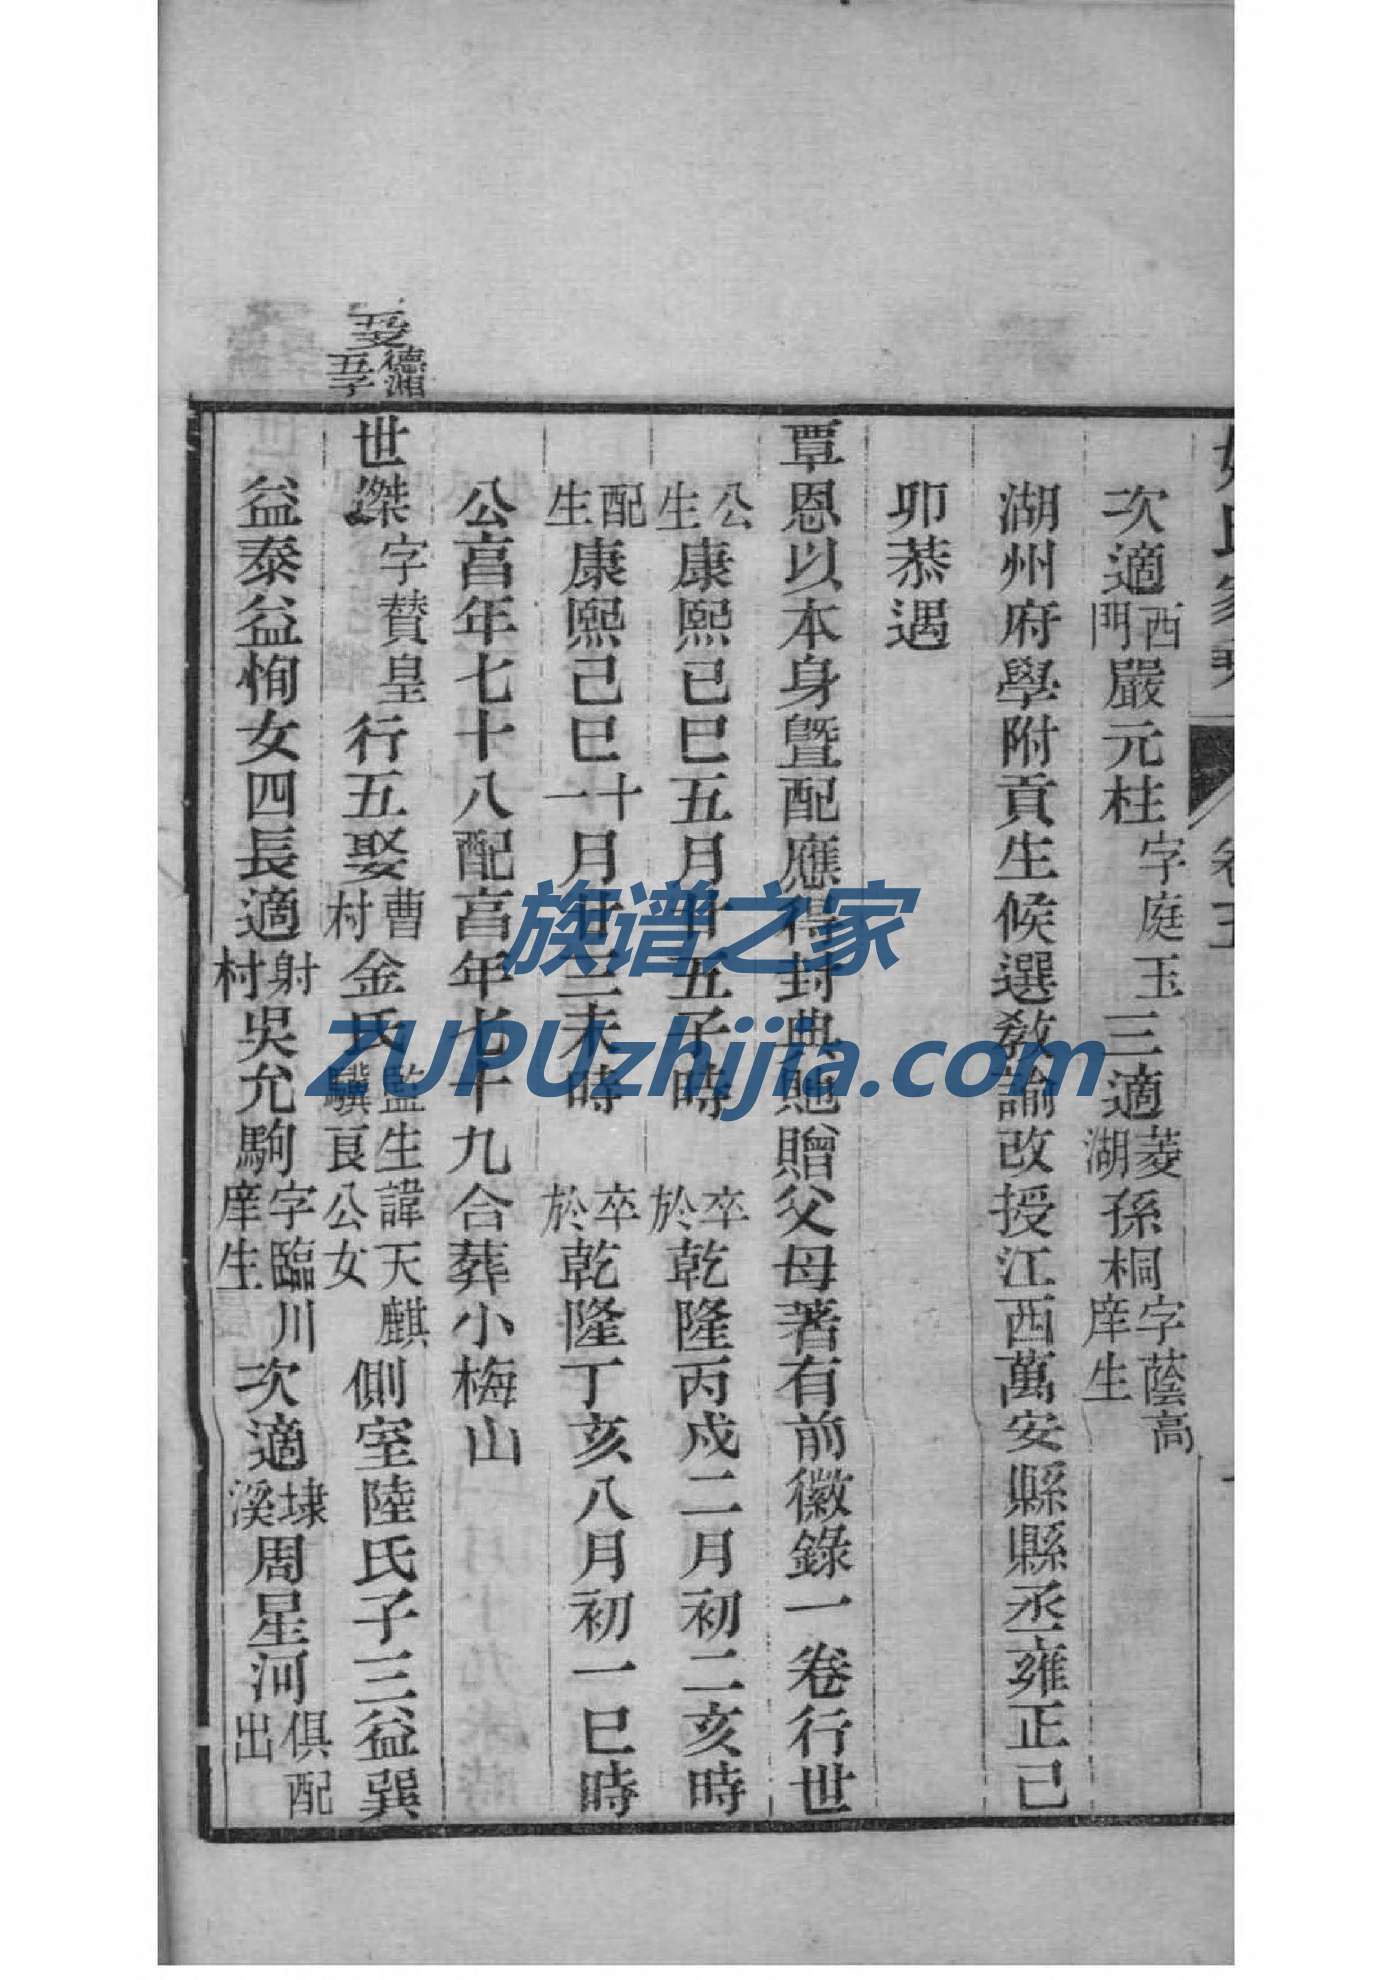 次適西門嚴元柱字庭玉三適菱湖孫桐字蔭高庠生
湖州府學附貢生候選教諭改授江西萬安縣縣丞雍正己
卯恭遇
覃恩以本身暨配應得封典貤贈父母著有前徽錄一卷行世
公生康熙己巳五月廿五子時卒於乾隆丙戍二月初二亥時
配生康熙己巳十一月廿三未時卒於乾隆丁亥八月初一巳時
公亯年七十八配亯年七十九合葬小梅山
德湘五子
世傑字贊皇行五娶曹村金氏監生諱天麒驥良公女側室陸氏子三益巽
益泰益恂女四長適射村吳允駒字臨川庠生次適埭溪周星河俱配出
卷五
族谱之家
ZUPUzhijia.com